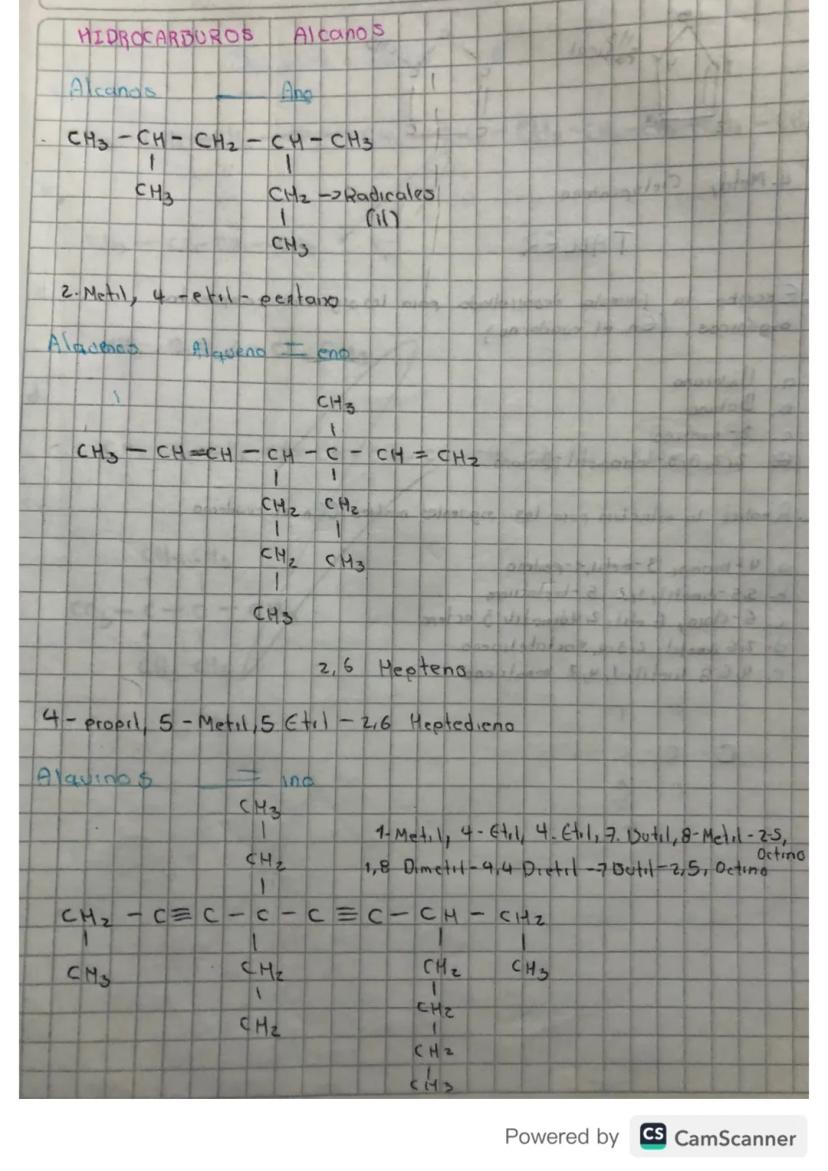 HIDROCARBUROS Alcanos
Alcanos — Ano
CH3 - CH - CH2 - CH - CH3
CH3 CH2 -> Radicales
(il)
CH3
2-Metil, 4-etil-pentano
Alqueno = eno
CH3
CH3 - CH=CH - CH - C - CH = CH2
CH2 CH2
CH2 CH3
CH3
2,6 Hepteno
4-propil, 5-Metil, 5 Etil - 2,6 Heptedieno
Alquinos ≡ ino
CH3
1-Metil, 4-Etil, 4-Etil, 7. Butil, 8-Metil-2-5,
Octino
CH2
1,8 Dimetil-4,4 Dietil-7 Butil-2,5, Octino
CH2 - C≡C - C - C≡C - CH - CH2
CH3 CH2 CH2 CH3
CH2 CH2
CH2
CH3
Powered by CS CamScanner